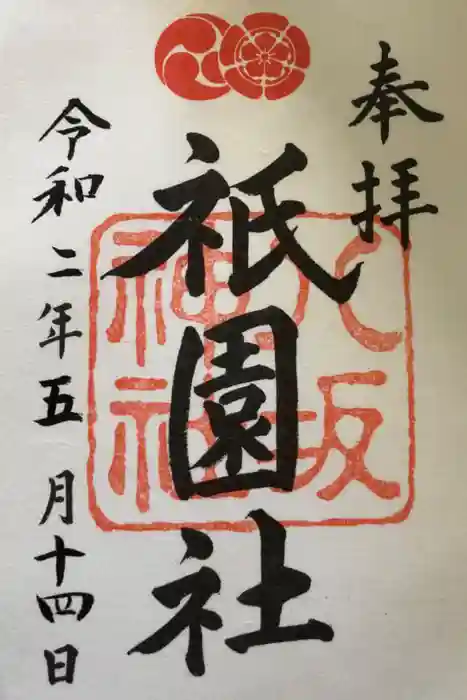 奉拝
八坂
神社
祇園社
令和二年五月十四日